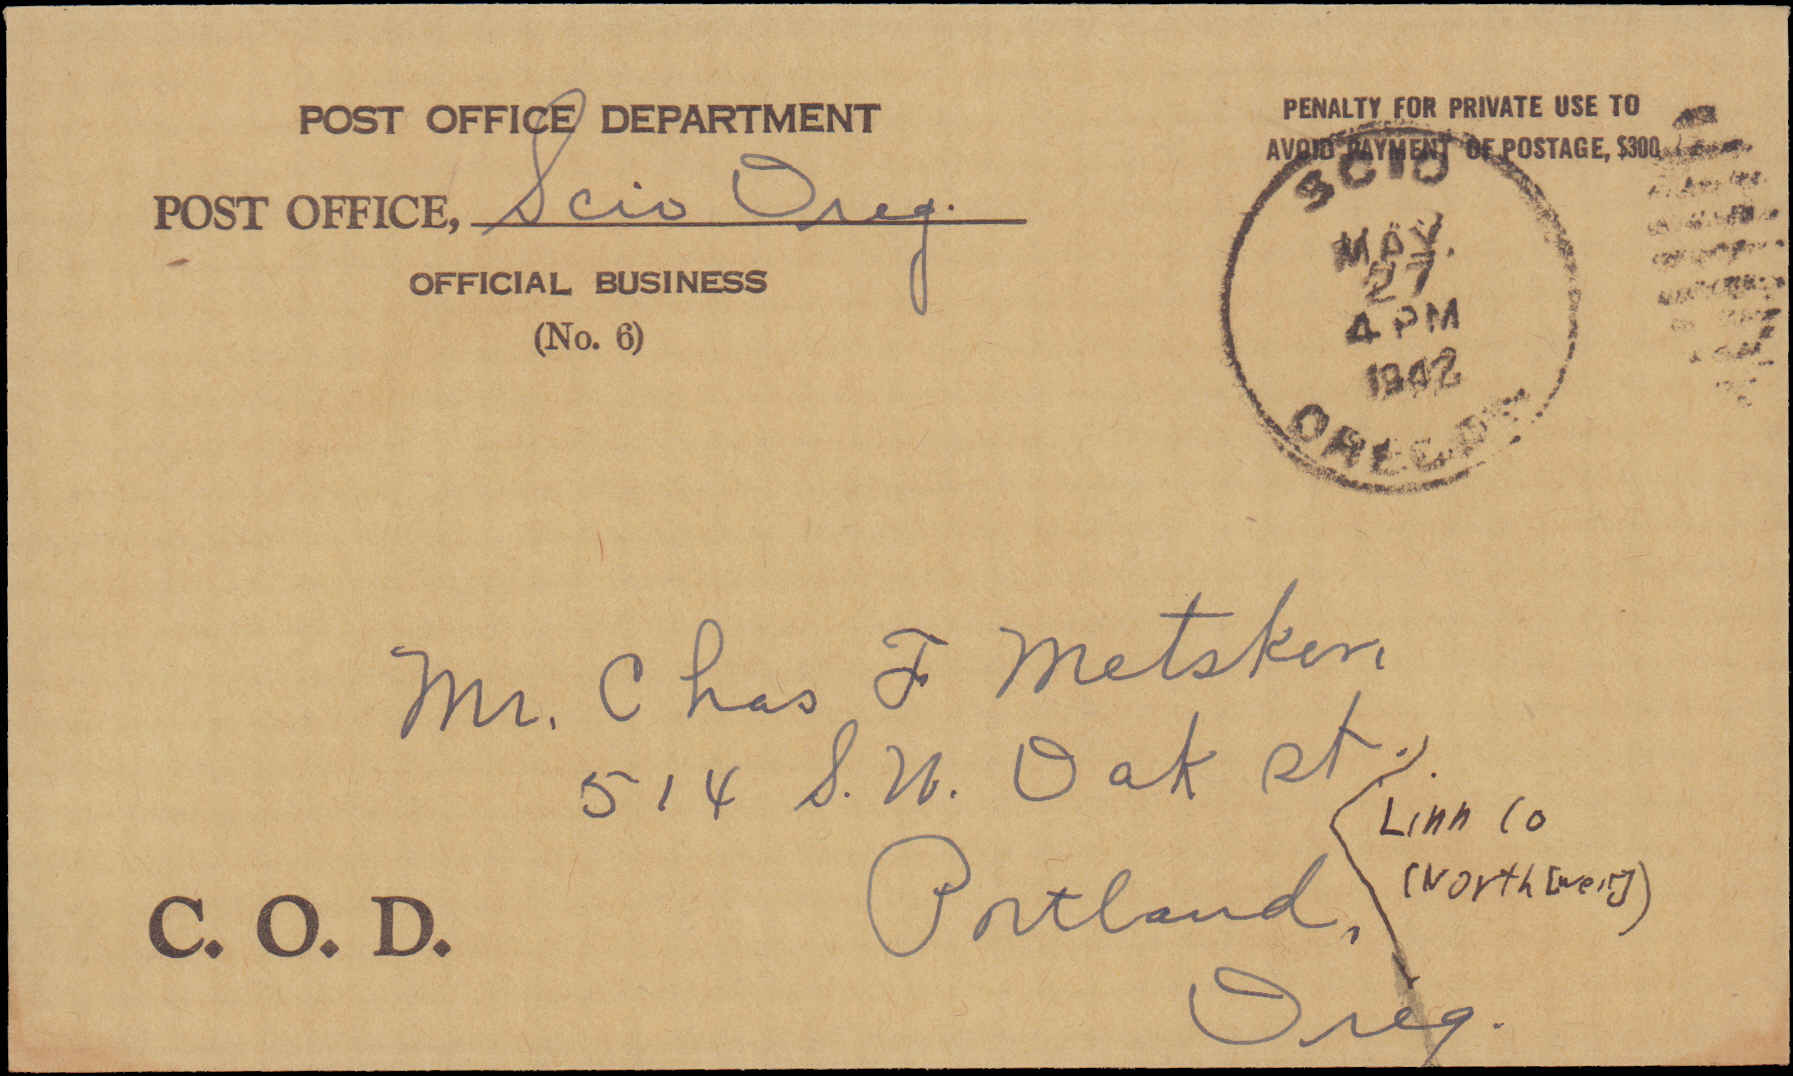 POST OFFICE DEPARTMENT
POST OFFICE, Scio Oreg.
OFFICIAL BUSINESS
(No. 6)
PENALTY FOR PRIVATE USE TO
AVOID PAYMENT OF POSTAGE, $300
SCIO
MAY
27
4 PM
1942
OREGON
Mr. Chas F Metsker,
514 S.W. Oak St.,
Portland,
Oreg.
Linn Co
(North [West])
C. O. D.